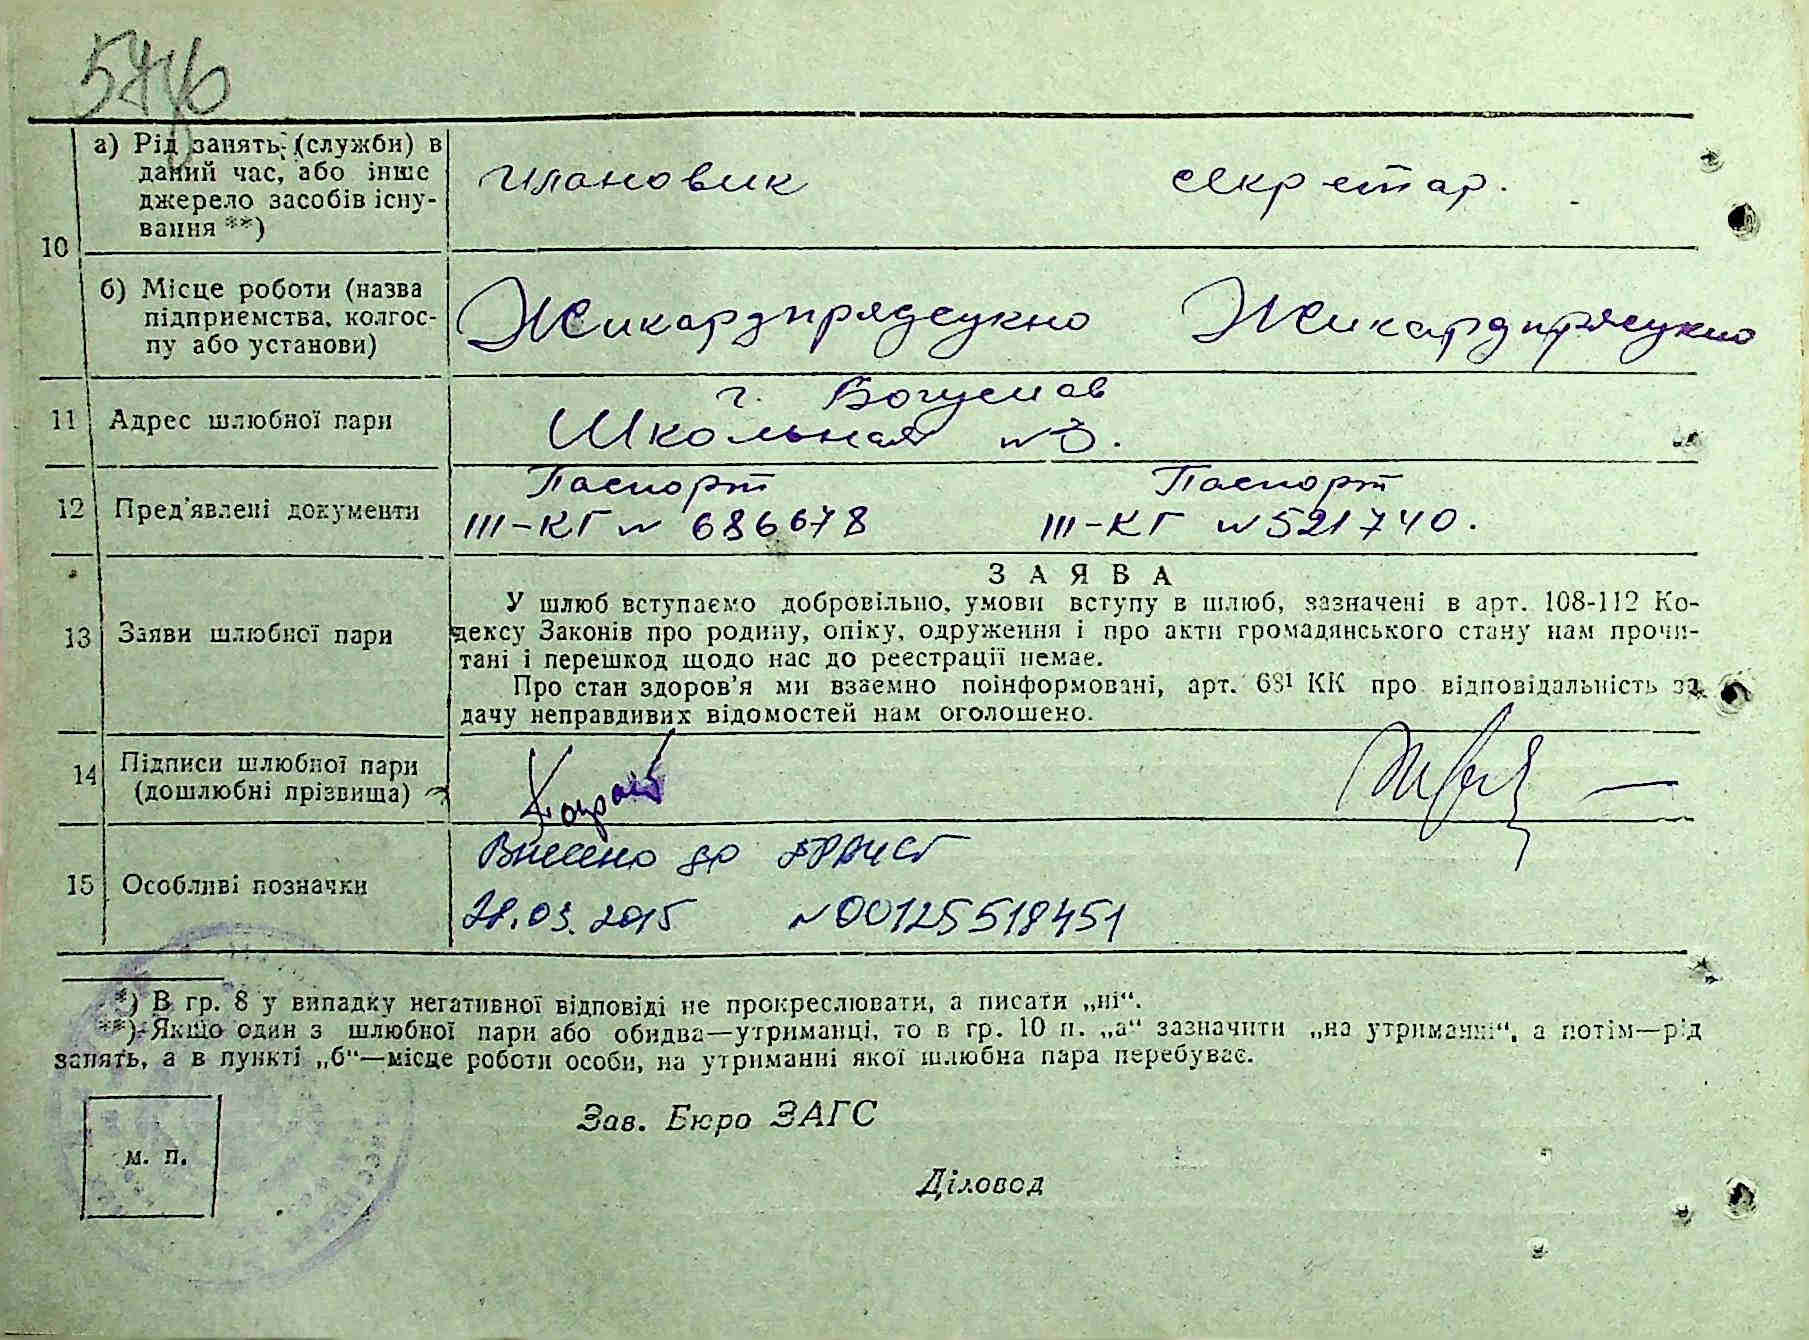 10
а) Рід занять (служби) в
даний час, або інше
джерело засобів існу-
вання **)
плановик секретар.
б) Місце роботи (назва
підприємства, колгос-
пу або установи)
11 Адрес шлюбної пари
г. Богуслав
Школьная №3.
12 Пред'явлені документи
Паспорт Паспорт
III-КГ № 686678 III-КГ №521740.
ЗАЯВА
13 Заяви шлюбної пари
У шлюб вступаємо добровільно, умови вступу в шлюб, зазначені в арт. 108-112 Ко-
дексу Законів про родину, опіку, одруження і про акти громадянського стану нам прочи-
тані і перешкод щодо нас до реєстрації немає.
Про стан здоров'я ми взаємно поінформовані, арт. 68¹ КК про відповідальність за
дачу неправдивих відомостей нам оголошено.
14 Підписи шлюбної пари
(дошлюбні прізвища)
15 Особливі позначки
Внесено до ДРАЦСГ
28.03.2015 №00125518451
*) В гр. 8 у випадку негативної відповіді не прокреслювати, а писати „ні“.
**) Якщо один з шлюбної пари або обидва—утриманці, то в гр. 10 п. „а“ зазначити „на утриманні“, а потім—рід
занять, а в пункті „б“—місце роботи особи, на утриманні якої шлюбна пара перебуває.
Зав. Бюро ЗАГС
м. п.
Діловод